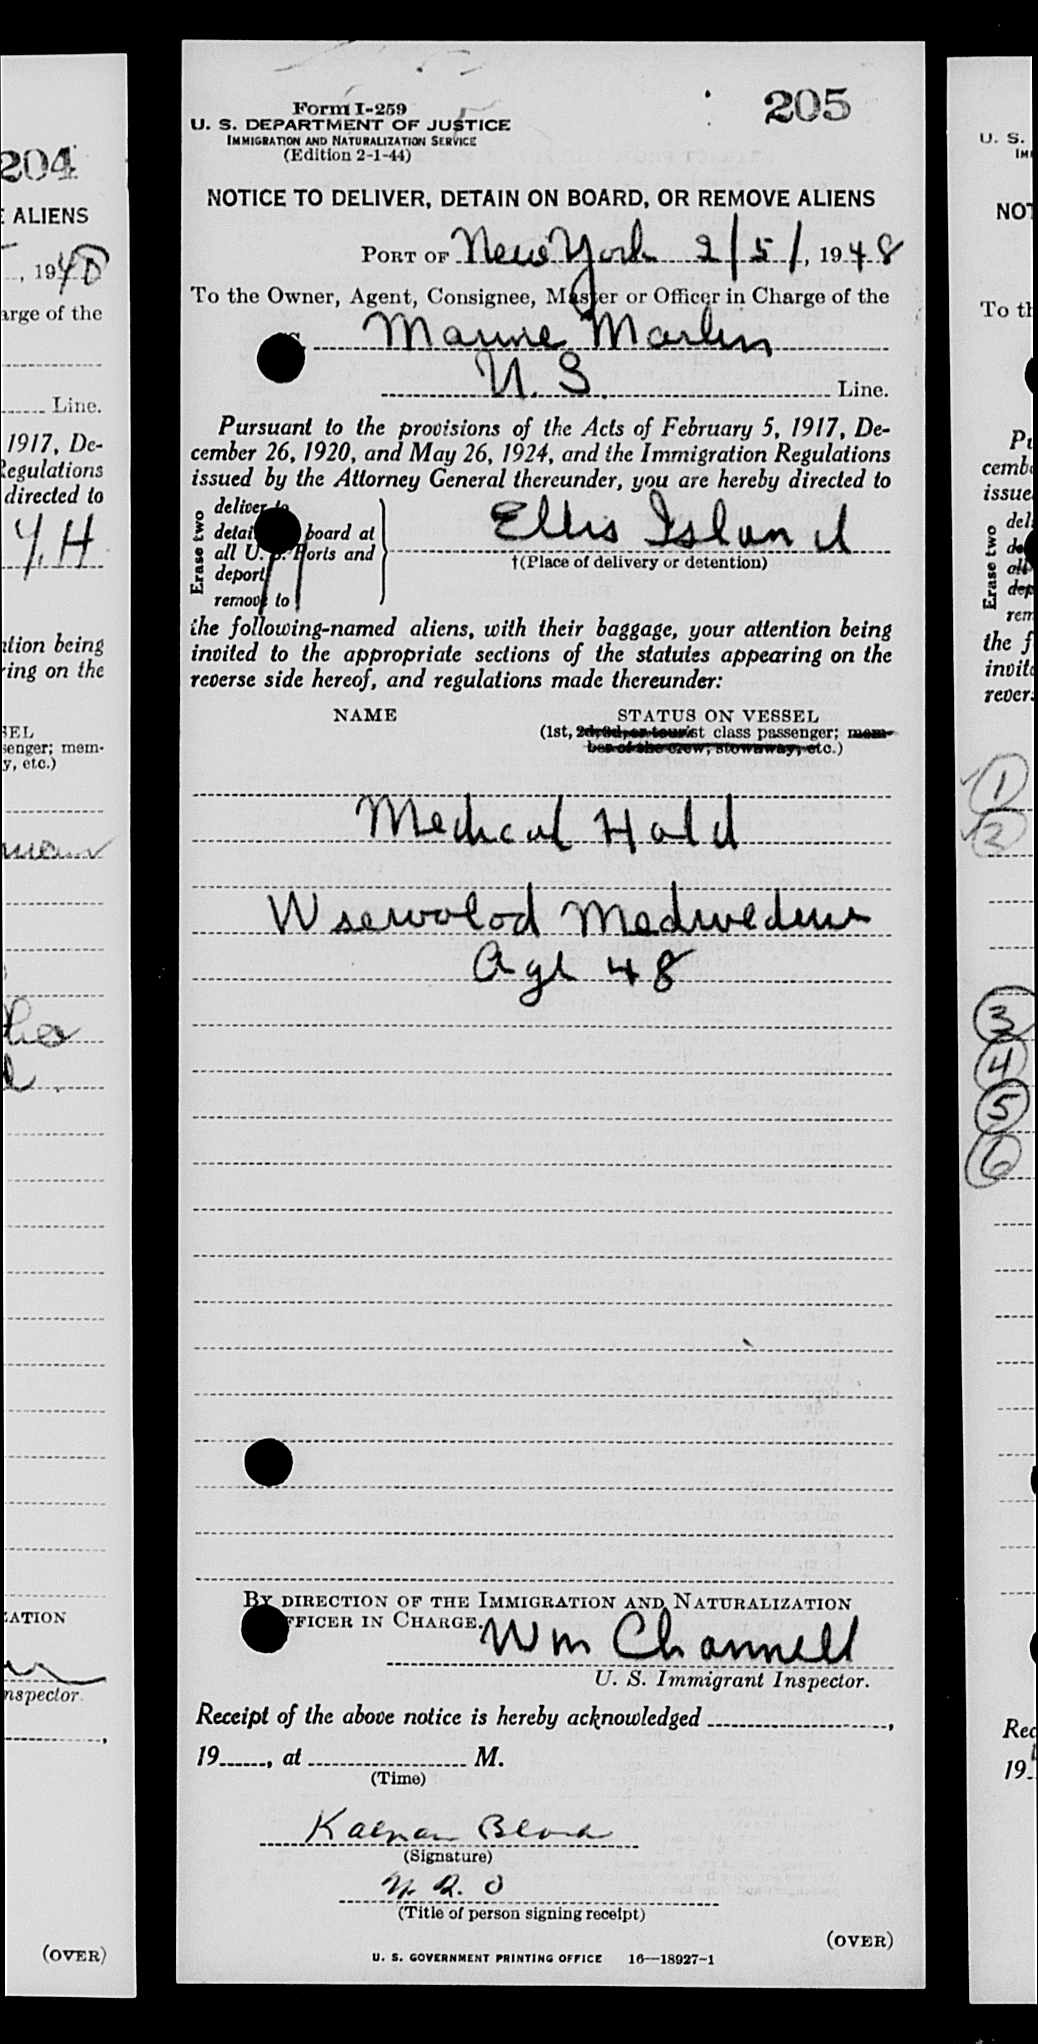 204
E ALIENS
, 1948
arge of the
Line.
1917, De-
Regulations
directed to
Y.H
tion being
ring on the
SEL
senger; mem-
y, etc.)
ZATION
nspector.
(OVER)
205
Form I-259
U. S. DEPARTMENT OF JUSTICE
IMMIGRATION AND NATURALIZATION SERVICE
(Edition 2-1-44)
NOTICE TO DELIVER, DETAIN ON BOARD, OR REMOVE ALIENS
PORT OF New York 2/5/, 1948
To the Owner, Agent, Consignee, Master or Officer in Charge of the
Marine Marlin
U.S. Line.
Pursuant to the provisions of the Acts of February 5, 1917, De-
cember 26, 1920, and May 26, 1924, and the Immigration Regulations
issued by the Attorney General thereunder, you are hereby directed to
Erase two
deliver to
detain board at
all U. S. Ports and
deport
remove to
Ellis Island
†(Place of delivery or detention)
the following-named aliens, with their baggage, your attention being
invited to the appropriate sections of the statutes appearing on the
reverse side hereof, and regulations made thereunder:
NAME STATUS ON VESSEL
(1st, 2d, 3d, or tourist class passenger; mem-
ber of the crew, stowaway, etc.)
Medical Hold
Wsewolod
Age 48
BY DIRECTION OF THE IMMIGRATION AND NATURALIZATION
OFFICER IN CHARGE.
Wm Channell
U. S. Immigrant Inspector.
Receipt of the above notice is hereby acknowledged ,
19 , at M.
(Time)
(Signature)
(Title of person signing receipt)
(OVER)
U. S. GOVERNMENT PRINTING OFFICE 16—18927-1
U. S.
IM
NOT
To th
Pu
cembe
issue
Erase two
del
de
all
dep
rem
the f
invite
revers
1
2
3
4
5
6
Rec
19